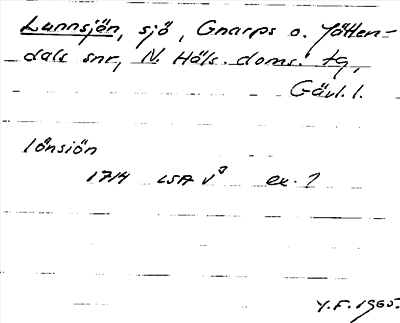 Lunnsjön, sjö, Gnarps o. Jätten-
dals snr, N. Häls. doms. tg,
Gävl. l.
lönsiön
1714 LSA V ex. ?
Y.F. 1965.